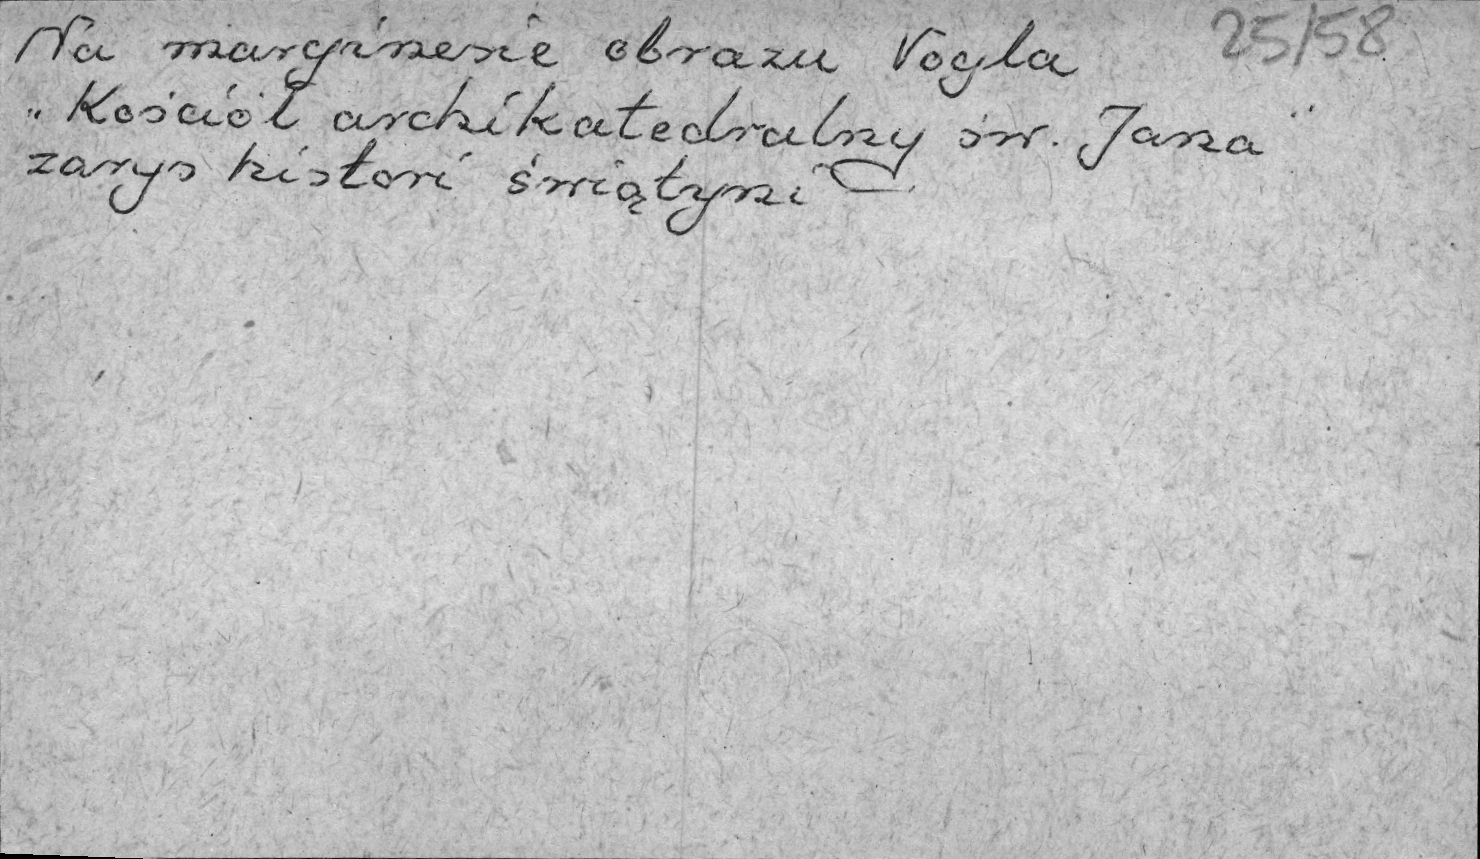 Na marginesie obrazu Vogla 25/58
"Kościół archikatedralny św. Jana"
zarys histori świątyni